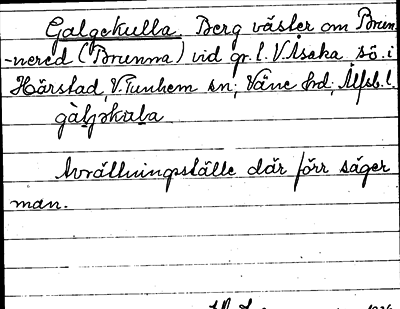 Galgekulla. Berg väster om Brun-
-nered (Brunna) vid gr. t. V. Åsaka sö. i
Härstad, V. Tunhem sn; Väne hd; Älfsb. l.
gàljəkula
Avrättningställe där förr säger
man.